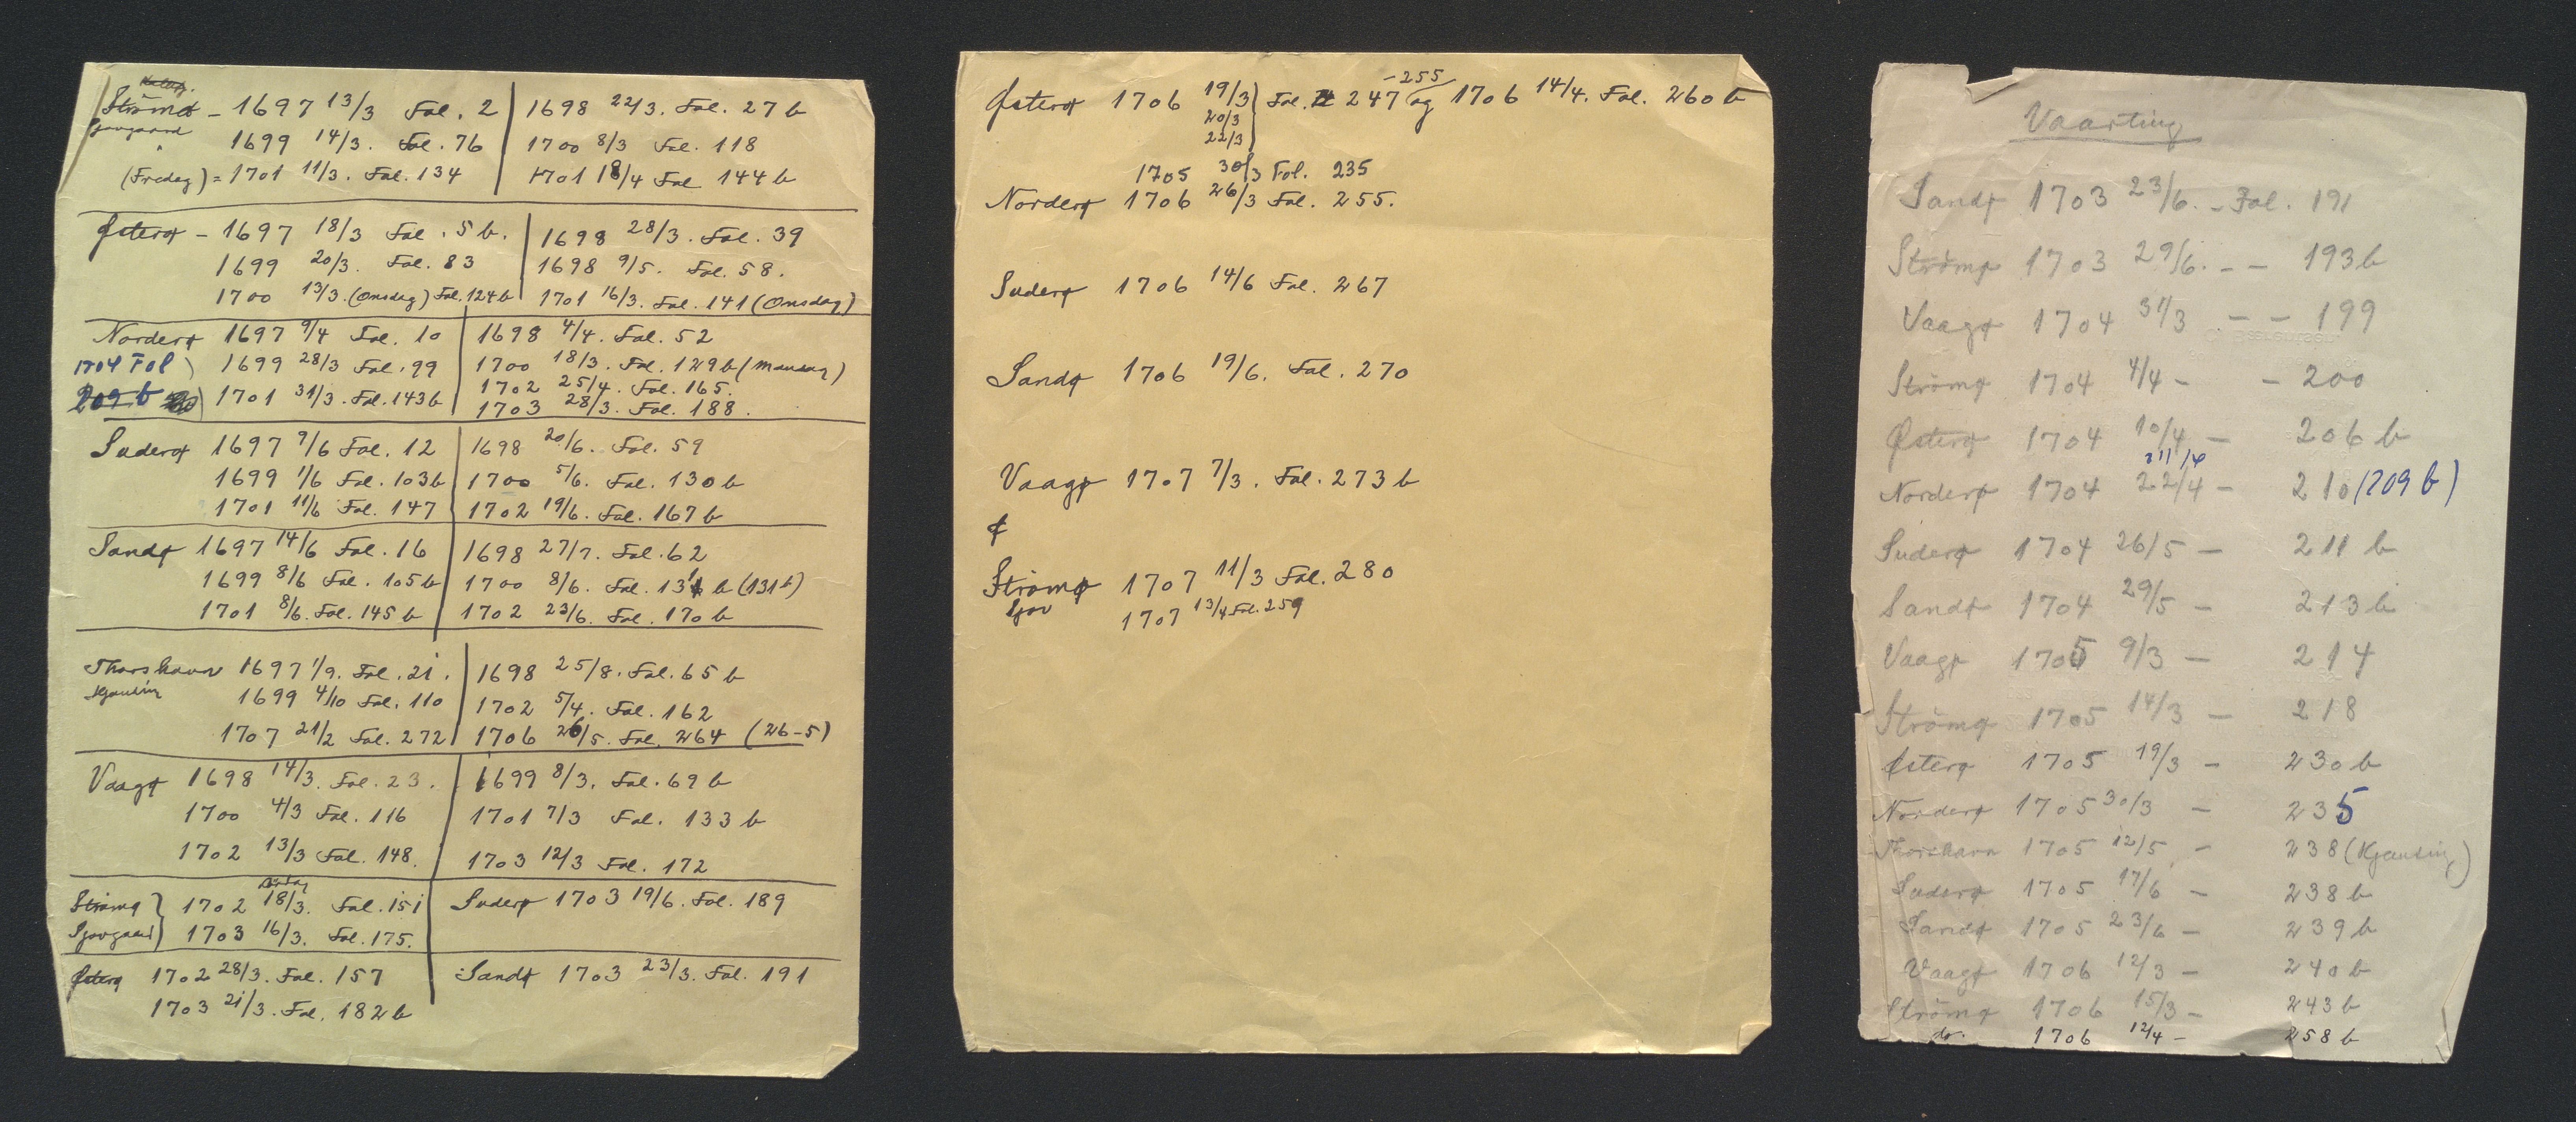 Strømø - 1697 13/3 Fol. 2 | 1698 22/3. Fol. 27 b
1699 14/3. Fol. 76 | 1700 8/3 Fol. 118
(Fredag) = 1701 11/3. Fol. 134 | 1701 18/4 Fol 144 b
Østerø - 1697 18/3 Fol. 5 b. | 1698 28/3. Fol. 39
1699 20/3. Fol. 83 | 1698 9/5. Fol. 58.
1700 13/3. (Onsdag) Fol. 124 b | 1701 16/3. Fol. 141 (Onsdag)
Norderø 1697 9/4 Fol. 10 | 1698 4/4. Fol. 52
1704 Fol ) 1699 28/3 Fol. 99 | 1700 18/3. Fol. 129 b (Mandag)
209 b ) 1701 31/3. Fol. 143 b | 1702 25/4. Fol. 165.
1703 28/3. Fol. 188.
Suderø 1697 9/6 Fol. 12 | 1698 20/6. Fol. 59
1699 1/6 Fol. 103 b | 1700 5/6. Fol. 130 b
1701 11/6 Fol. 147 | 1702 19/6. Fol. 167 b
Sandø 1697 14/6 Fol. 16 | 1698 27/7. Fol. 62
1699 8/6 Fol. 105 b | 1700 8/6. Fol. 131 b (131 b)
1701 8/6. Fol. 145 b | 1702 23/6. Fol. 170 b
Thorshavn 1697 1/9. Fol. 21. | 1698 25/8. Fol. 65 b
Kjændsin 1699 4/10 Fol. 110 | 1702 5/4. Fol. 162
1707 21/2 Fol. 272 | 1706 26/5. Fol. 264 (26-5)
Vaagø 1698 14/3. Fol. 23. | 1699 8/3. Fol. 69 b
1700 4/3 Fol. 116 | 1701 7/3 Fol. 133 b
1702 13/3 Fol. 148. | 1703 12/3 Fol. 172
Strømø } 1702 18/3. Fol. 151 | Suderø 1703 19/6. Fol. 189
Sjovgaard } 1703 16/3. Fol. 175.
Østerø 1702 28/3. Fol. 157 | Sandø 1703 23/3. Fol. 191
1703 21/3. Fol. 182 b
-255
Østerø 1706 19/3 } Fol. 247 og 1706 14/4. Fol. 260 b
20/3
22/3
1705 30/3 Fol. 235
Norderø 1706 26/3 Fol. 255.
Suderø 1706 14/6 Fol. 267
Sandø 1706 19/6. Fol. 270
Vaagø 1707 7/3. Fol. 273 b
¢
Strømø 1707 11/3 Fol. 280
Sjov 1707 13/4 Fol. 259
Vaarting
Sandø 1703 23/6. - Fol. 191
Strømø 1703 29/6. - - 193 b
Vaagø 1704 31/3 - - 199
Strømø 1704 4/4 - - 200
Østerø 1704 10/4 - 206 b
Norderø 1704 22/4 - 210 (209 b)
Suderø 1704 26/5 - 211 b
Sandø 1704 29/5 - 213 b
Vaagø 1705 9/3 - 214
Strømø 1705 14/3 - 218
Østerø 1705 19/3 - 230 b
Norderø 1705 30/3 - 235
Thorshavn 1705 12/5 - 238 (Kjændsin)
Suderø 1705 17/6 - 238 b
Sandø 1705 23/6 - 239 b
Vaagø 1706 12/3 - 240 b
Strømø 1706 15/3 - 243 b
do. 1706 12/4 - 258 b